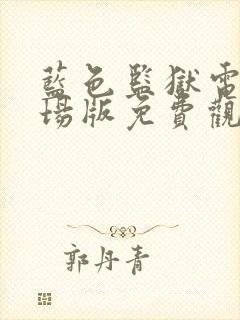 藍色監獄電
場版免費觀
郭丹青